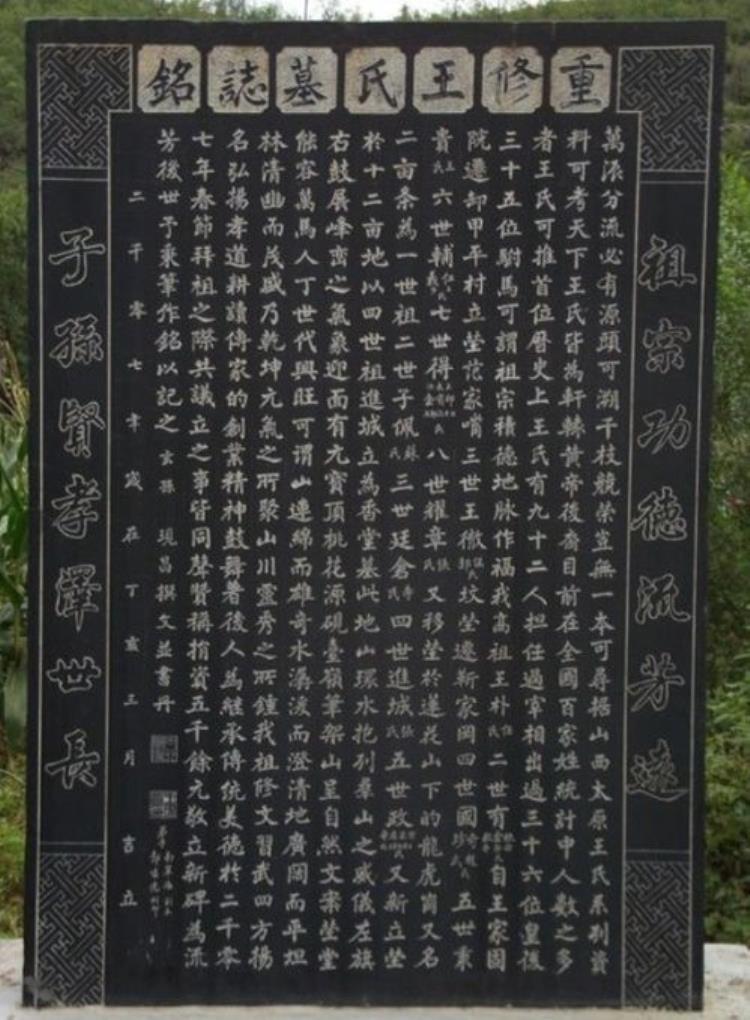 重修王氏墓誌銘
祖宗功德流芳遠
萬派分流必有源頭可溯千枝競榮豈無一本可尋據山西太原王氏系列資
料可考天下王氏皆為軒轅黃帝後裔目前在全國百家姓統計中人數之多
者王氏可推首位曆史上王氏有九十二人担任過宰相出過三十六位皇後
三十五位駙馬可謂祖宗積德地脉作福我高祖王朴氏二世有自王家園
院遷卸甲平村立塋詫家嘴三世王徹氏坟塋遷新家岡四世國氏五世秉
貴氏六世輔氏七世得氏八世耀章氏又移塋於蓮花山下的龍虎崗又名
二亩条為一世祖二世子佩蘇氏三世廷倉氏四世進城張氏五世政氏又新立塋
於十二亩地以四世祖進城立為香堂墓此地山環水抱列羣山之威儀左旗
右鼓展峰巒之氣象迎面有元寶頂桃花源硯臺嶺筆架山呈自然文案塋堂
能容萬馬人丁世代興旺可謂山連綿而雄奇水潺湲而澄清地廣闊而平坦
林清幽而茂盛乃乾坤元氣之所聚山川靈秀之所鍾我祖修文習武四方揚
名弘揚孝道耕讀傳家的創業精神鼓舞著後人為継承傳統美德於二千零
七年春節拜祖之際共議立之事皆同聲贊稱捐資五千餘元敬立新碑為流
芳後世予秉筆作銘以記之 玄孫 現昌撰文並書丹
二千零七年歲在丁亥三月吉立
子孫賢孝澤世長